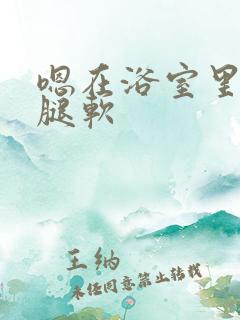 嗯在浴室里
腿软
王纳
未经同意禁止转载